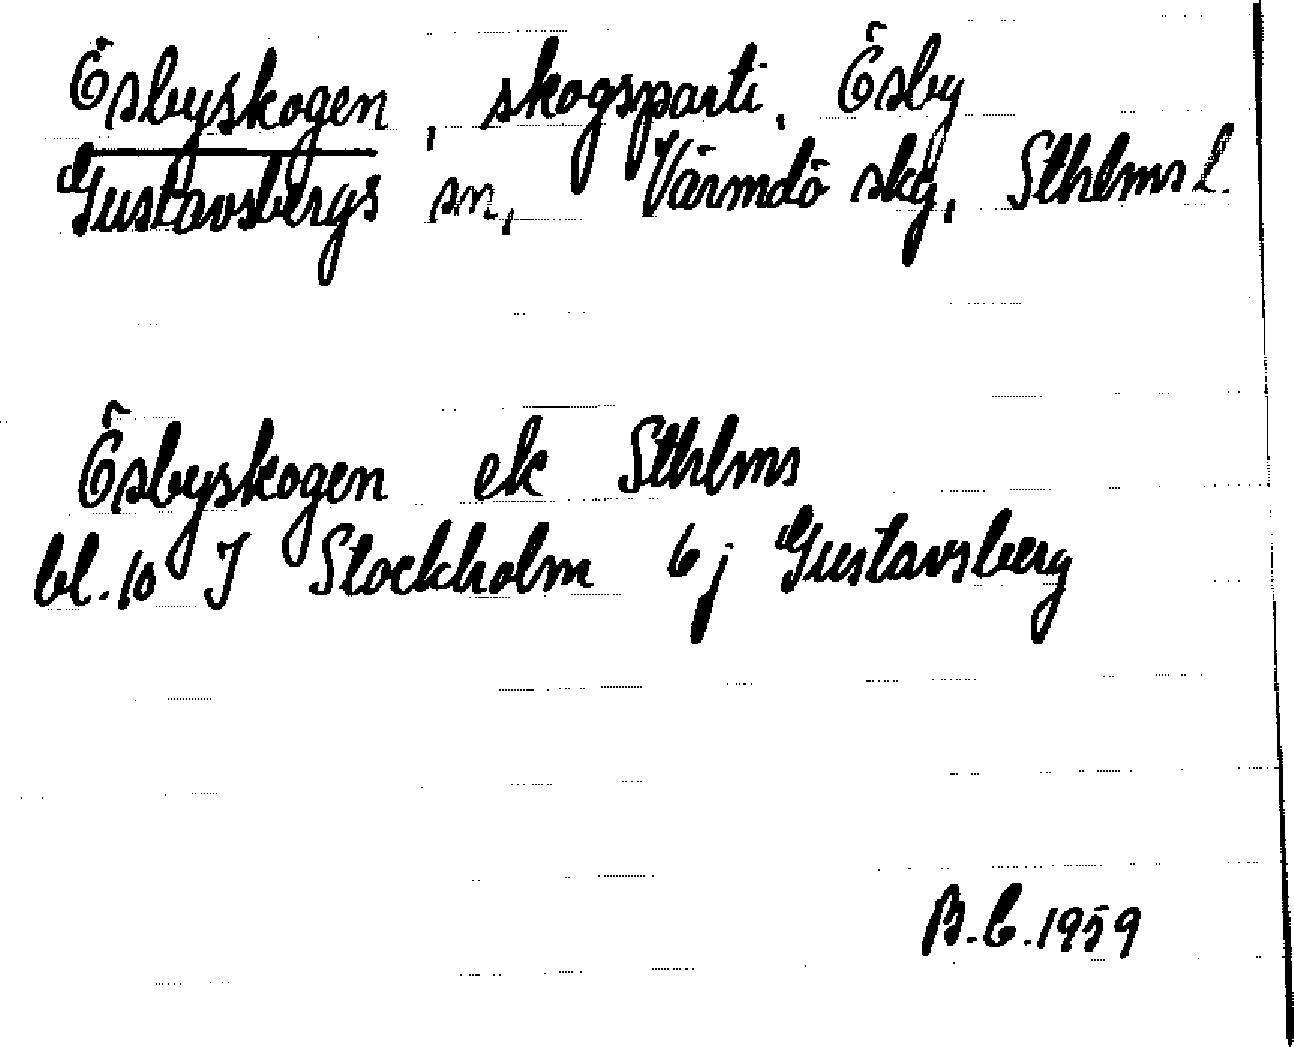 Ösbyskogen, skogsparti, Ösby
Gustavsbergs sn, Värmdö skg, Sthlms l.
Ösbyskogen ek Sthlms
bl. 10 J Stockholm 6 j Gustavsberg
B.C. 1959